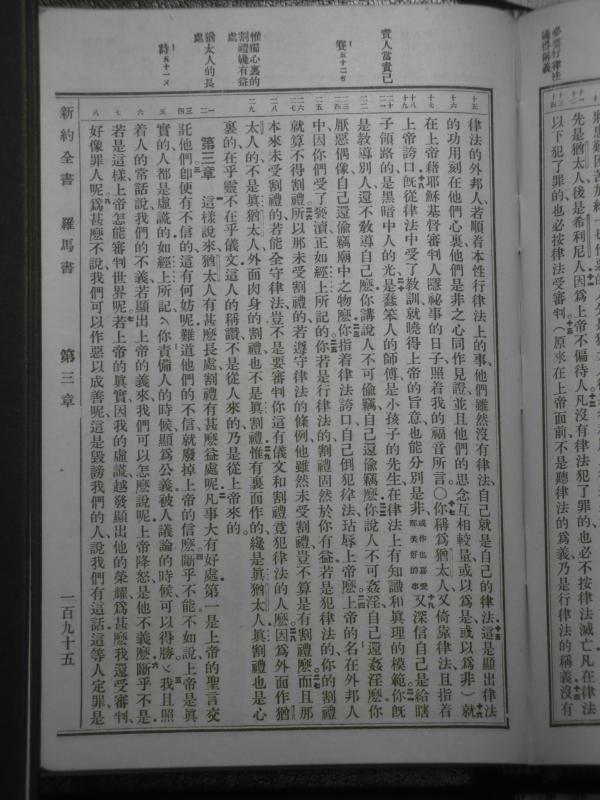 必要行律法
纔得稱義
先是猶太人後是希利尼人因爲上帝不偏待人凡沒有律法犯了罪的也必不按律法滅亡凡在律法
以下犯了罪的也必按律法受審判（原來在上帝面前不是聽律法的爲義乃是行律法的稱義沒有
責人當責己
賽五十二
惟獨心裏的
割禮纔有益
處
猶太人的長
處
詩五十一
律法的外邦人、若順着本性行律法上的事、他們雖然沒有律法、自己就是自己的律法這是顯出律法
的功用刻在他們心裏他們是非之心同作見證、並且他們的思念互相較量、或以爲是、或以爲非）就
在上帝藉耶穌基督審判人隱祕事的日子照着我的福音所言〇你稱爲猶太人又倚靠律法且指着
上帝誇口旣從律法中受了教訓、就曉得上帝的旨意也能分別是非或作也喜愛那美好的事又深信自己是給瞎
子領路的是黑暗中人的光是蠢笨人的師傅是小孩子的先生在律法上有知識和眞理的模範你旣
是教導別人、還不敎導自己麽你講說人不可偷竊自己還偷竊麽你說人不可姦淫自己還姦淫麽你
厭惡偶像自己還偷竊廟中之物麽你指着律法誇口自己倒犯律法玷辱上帝麽上帝的名在外邦人
中、因你們受了褻瀆正如經上所記的你若是行律法的割禮固然於你有益若是犯律法的你的割禮
就算不得割禮所以那未受割禮的若遵守律法的條例他雖然未受割禮豈不算是有割禮麽而且那
本來未受割禮的若能全守律法豈不是要審判你這有儀文和割禮竟犯律法的人麽因爲外面作猶
太人的不是眞猶太人外面肉身的割禮也不是眞割禮惟有裏面作的纔是眞猶太人眞割禮也是心
裏的在乎靈不在乎儀文這人的稱讚不是從人來的乃是從上帝來的
第三章 這樣說來猶太人有甚麽長處割禮有甚麽益處呢凡事大有好處第一是上帝的聖言交
託他們卽便有不信的這有何妨呢難道他們的不信就廢掉上帝的信麽斷乎不能不如說上帝是眞
實的人都是虛謊的如經上所記你責備人的時候顯爲公義被人議論的時候可以得勝我且照
着人的常話說我們的不義若顯出上帝的義來我們可以怎麽說呢上帝降怒是他不義麽斷乎不是、
若是這樣上帝怎能審判世界呢若上帝的眞實因我的虛謊越發顯出他的榮耀爲甚麽我還受審判、
好像罪人呢爲甚麽不說我們可以作惡以成善呢這是毀謗我們的人說我們有這話這等人定罪是
新約全書 羅馬書 第三章 一百九十五